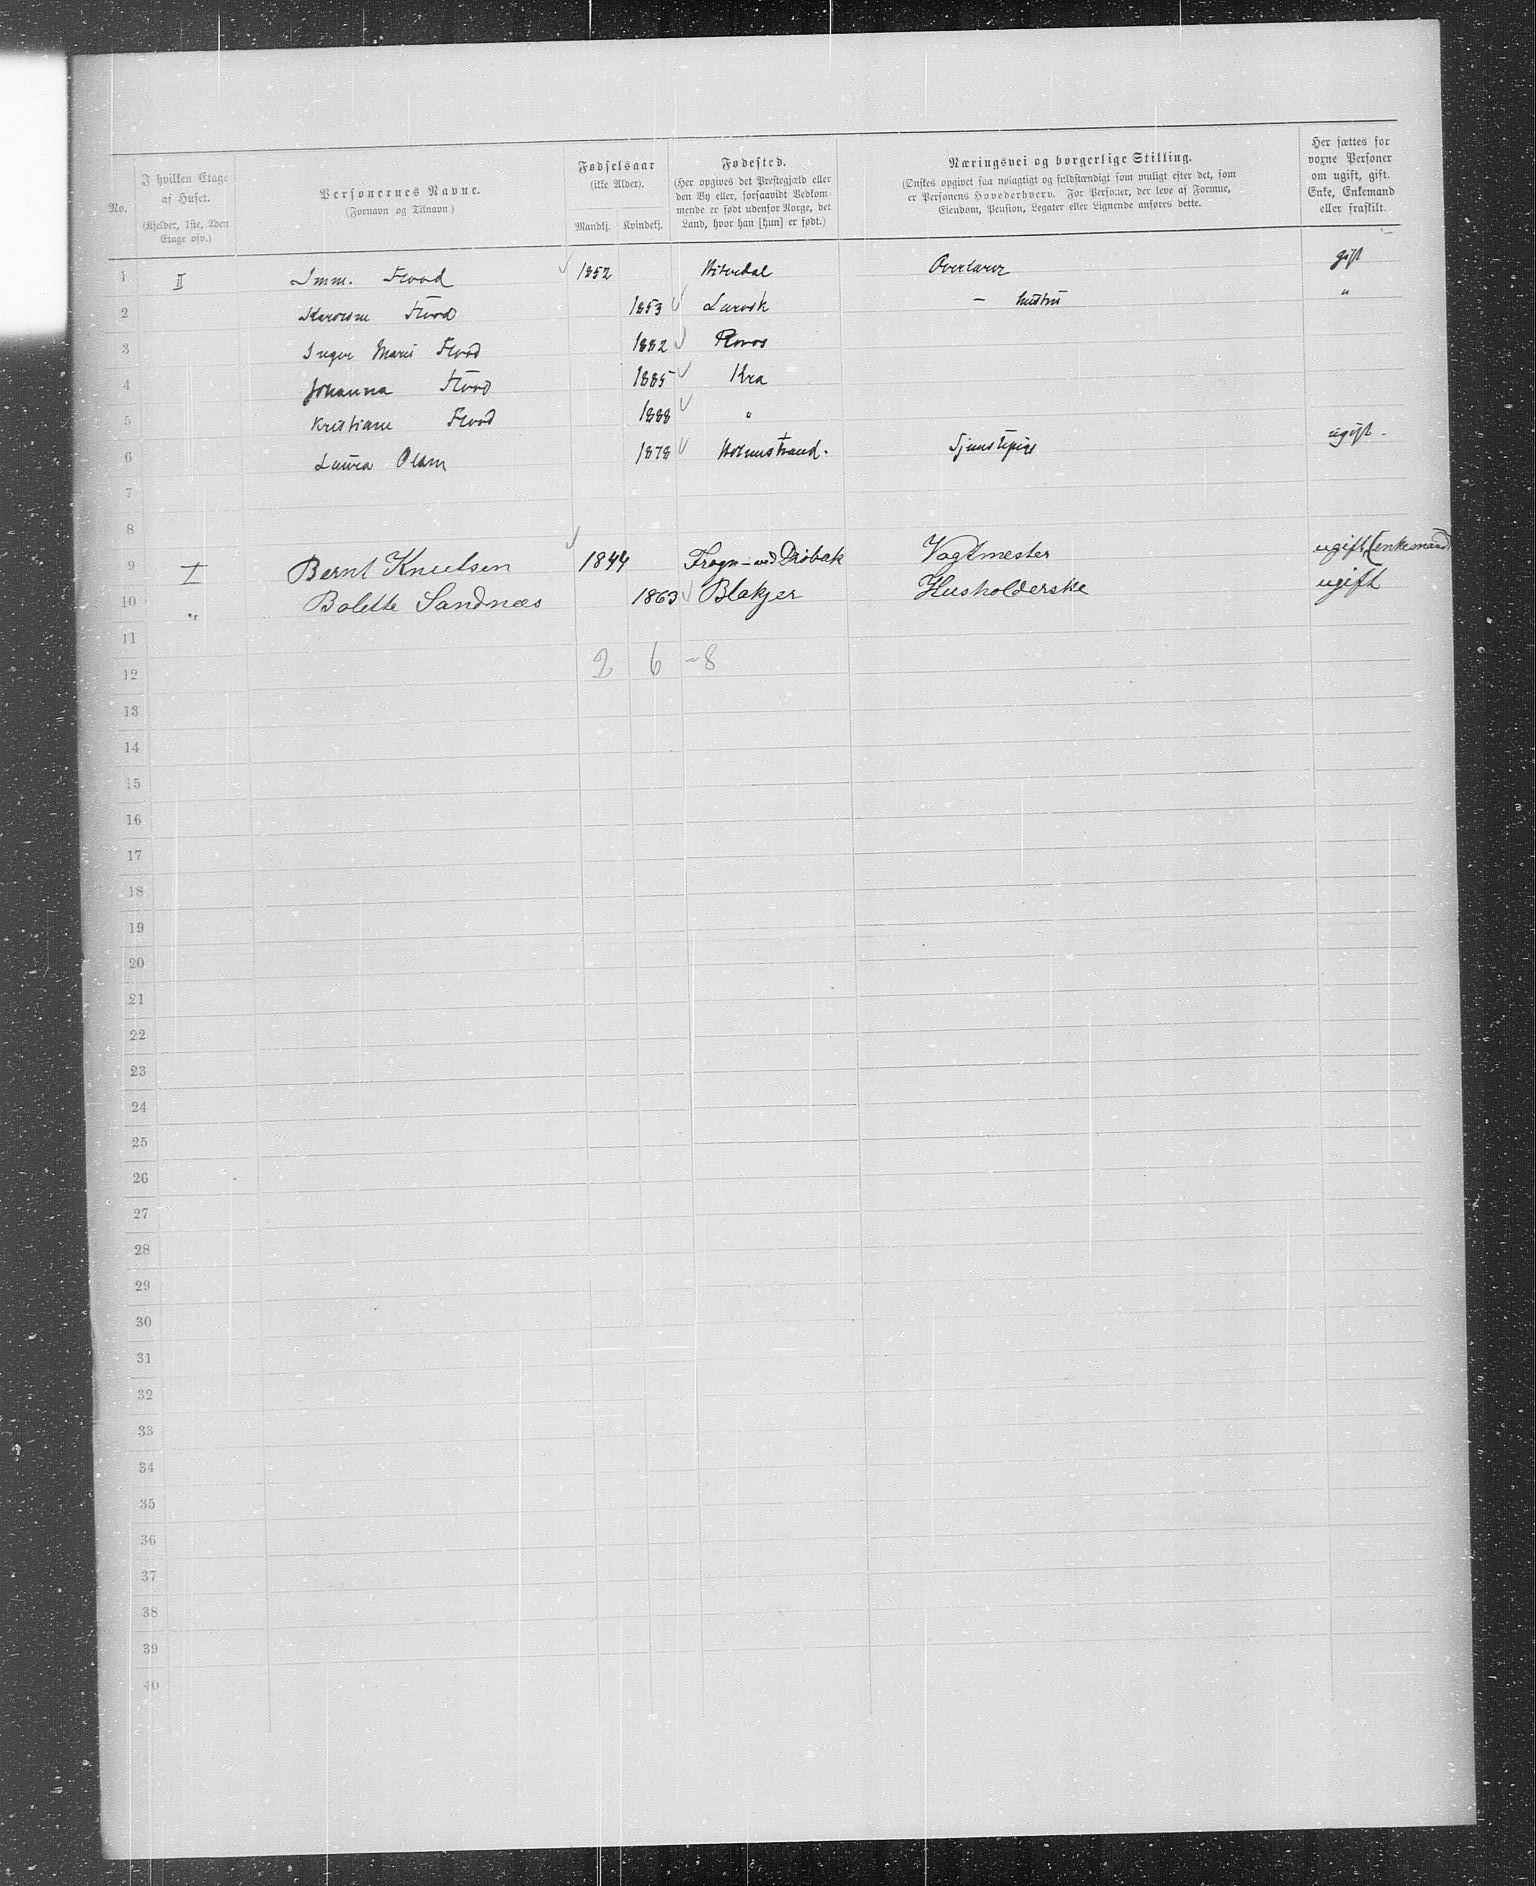 No.
I hvilken Etage af Huset.
(Kjelder, 1ste, 2den Etage osv.)
Personernes Navne.
(Fornavn og Tilnavn)
Fødselsaar
(ikke Alder).
Mandkj. Kvindekj.
Fødested.
(Her opgives det Præstegjæld eller
den By eller, forsaavidt Vedkom-
mende er født udenfor Norge, det
Land, hvor han [hun] er født.)
Næringsvei og borgerlige Stilling.
(Ønskes opgivet saa nøiagtigt og fuldstændigt som muligt efter det, som
er Personens Hovederhverv. For Personer, der leve af Formue,
Eiendom, Pension, Legater eller Lignende anføres dette.
Her sættes for
voxne Personer
om ugift, gift.
Enke, Enkemand
eller fraskilt
1 II Imm. Flood 1852 Hiterdal Overlærer gift
2 Flood 1853 Larvik – hustru "
3 Inger Marie Flood 1882 Roros
4 Johanna Flood 1885 Kra
5 Kristiane Flood 1888 "
6 Laura Olsen 1878 Holmstrand. ugift -
7
8
9 I Bernt Knutsen 1844 Frogn – ved Drøbak Vagtmester ugift (enkemand)
10 " Bolette Sandnæs 1863 Blakjer Husholderske ugift
11
12 2 6 - 8
13
14
15
16
17
18
19
20
21
22
23
24
25
26
27
28
29
30
31
32
33
34
35
36
37
38
39
40